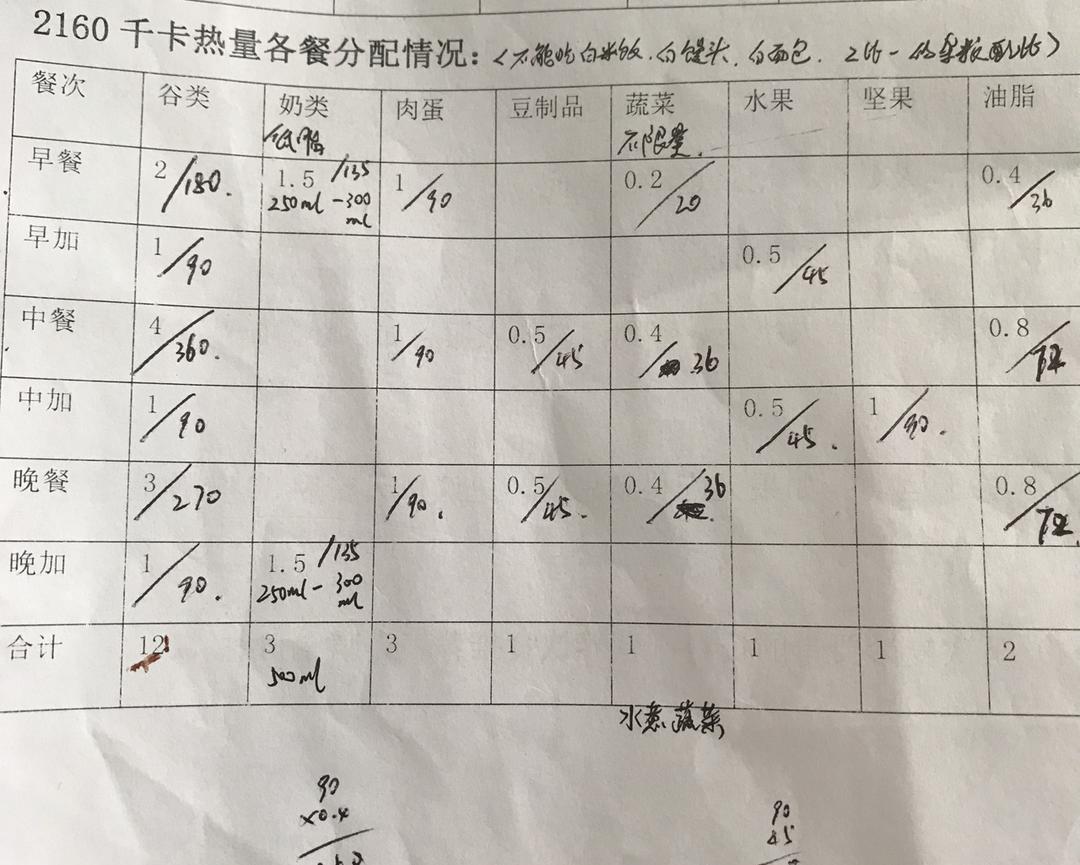 2160 千卡热量各餐分配情况：（不能吃白米饭、白馒头、白面包．2比一的杂粮配比）
餐次 谷类 奶类 肉蛋 豆制品 蔬菜 水果 坚果 油脂
低脂 不限量.
早餐 2/180. 1.5/135 1/90 0.2/20 0.4/36
250ml-300ml
早加 1/90 0.5/45
中餐 4/360. 1/90 0.5/45 0.4/36 0.8/72
中加 1/90 0.5/45. 1/90.
晚餐 3/270 1/90. 0.5/45. 0.4/36 0.8/72
晚加 1/90. 1.5/135
250ml-300ml
合计 12 3 3 1 1 1 1 2
500ml
水煮蔬菜
90 90
×0.4 45